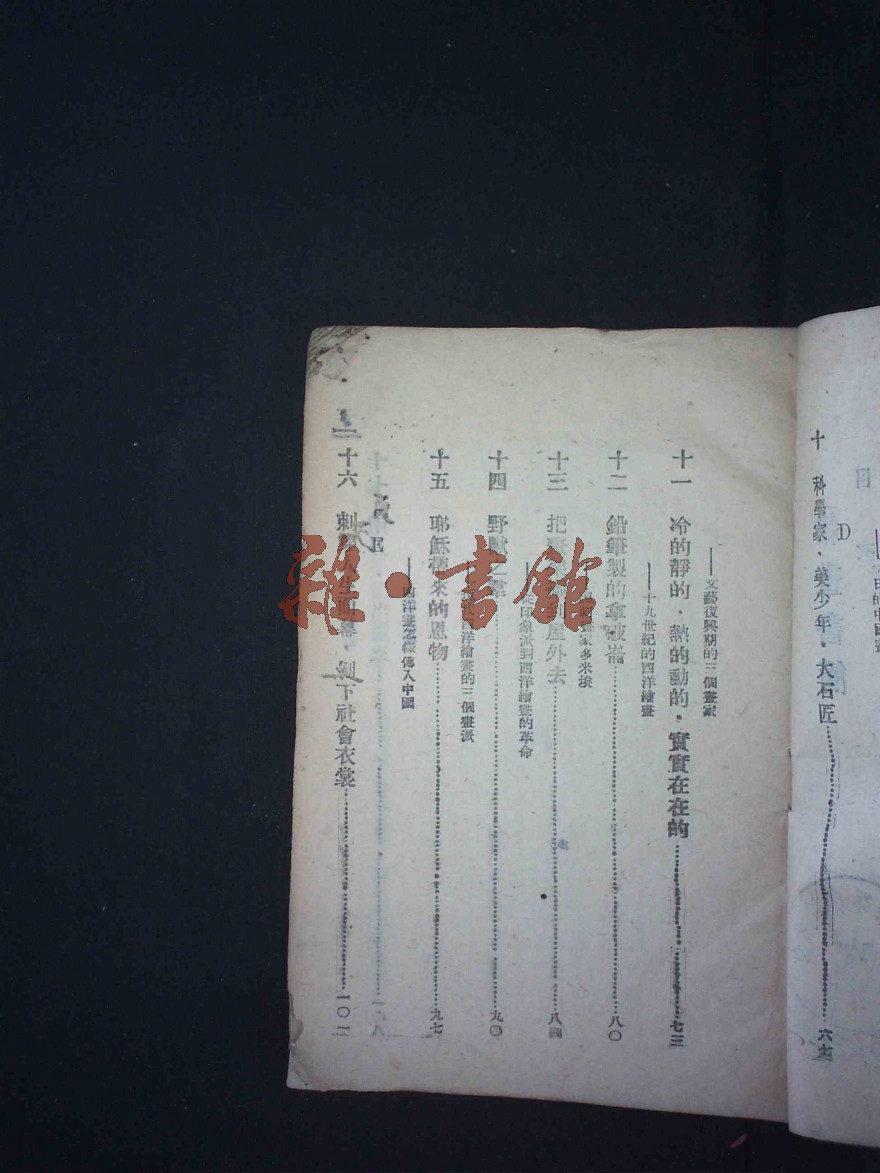 D
十 科學家・美少年・大石匠 六七
——文藝復興期的三個畫家
十一 冷的靜的・熱的動的・實實在在的 七三
——十九世紀的西洋繪畫
十二 鉛筆製的拿破崙 八〇
畫家多米埃
十三 把 到屋外去 八四
從印象派到西洋繪畫的革命
十四 野獸之羣 九〇
西洋繪畫的三個畫派
十五 耶穌帶來的恩物 九七
——西洋畫怎樣傳入中國
E
十六 刺 人生 幕・剝下社會衣裳 一〇二
二
雜・書館